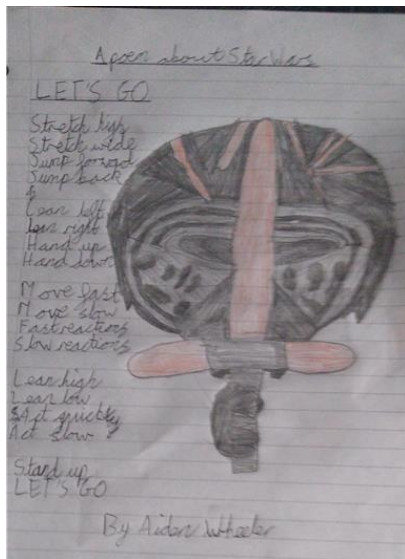 A poem about Star Wars
LET'S GO
Stretch high
Stretch wide
Jump forward
Jump back
&
Lean left
Lean right
Hand up
Hand down
Move fast
Move slow
Fast reactions
Slow reactions
Lean high
Lean low
Act quickly
Act slow
Stand up
LET'S GO
By Aiden Wheeler